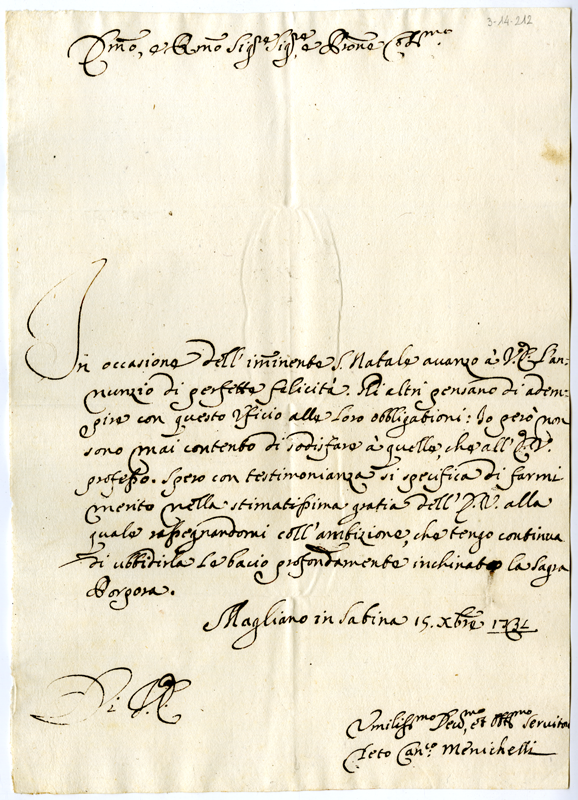 3-14-212
Emo, e Rmo Sigre Sigre, e Prone Colmo
In occasione dell'imminente S. Natale avanzo à V. E. l'an-
nunzio di perfette felicità. Gli altri pensano di adem-
pire con questo Ufficio alle loro obbligationi: Io però non
sono mai contento di sodisfare à quelle, che all'E. V.
professo. Spero con testimonianza si specifica di farmi
merito nella stimatissima gratia dell'E. V. alla
quale rassegnandomi coll'ambizione, che tengo continua
di ubbidirla le bacio profondamente inchinato la Sagra
Porpora.
Magliano in Sabina 15. Xbre
Di V. E.
Umilissmo Devmo, et Obbmo Servitor
Canco Menichelli